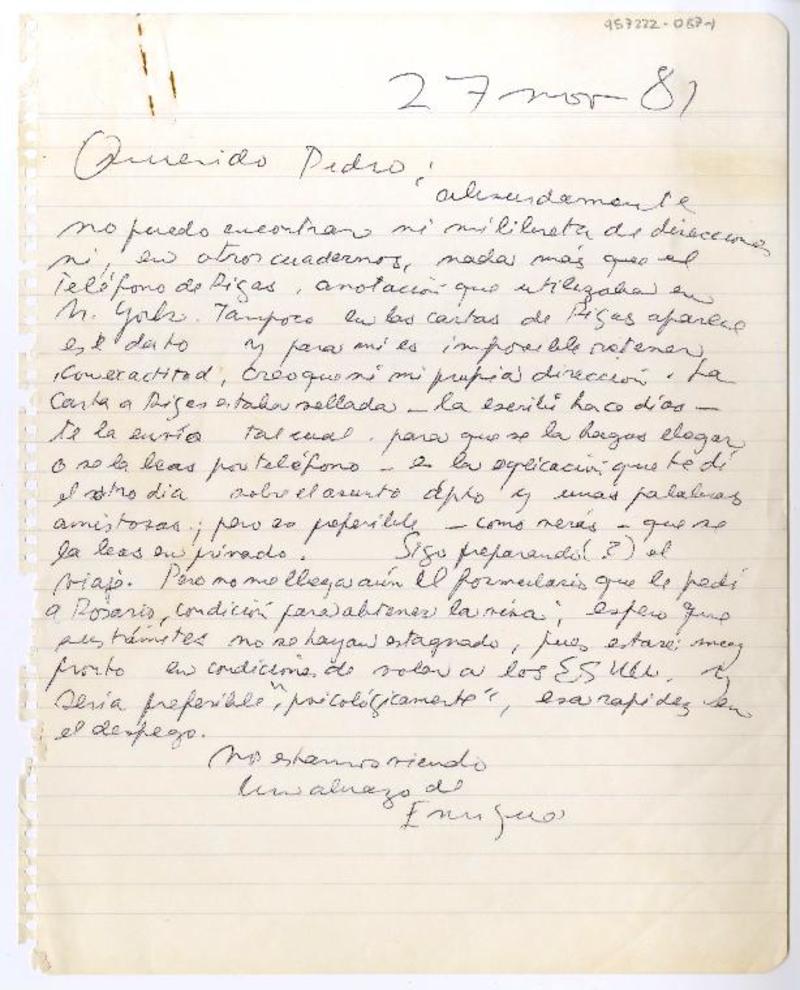 957222-087-1
27 nov 81
Querido Pedro:
absurdamente
no puedo encontrar ni mi libreta de direcciones
ni, en otros cuadernos, nada más que el
teléfono de Rigas, anotación que utilizaba en
N. York. Tampoco en las cartas de Rigas aparece
este dato y para mí es imposible retener
con exactitud, creo que ni mi propia dirección. La
carta a Rigas estaba sellada – la escribí hace días –
te la envío tal cual, para que se la hagas llegar
o se la leas por teléfono – es la explicación que te di
el otro día sobre el asunto dpto y unas palabras
amistosas; pero es preferible – como verás – que se
la leas en privado. Sigo preparando(?) el
viaje. Pero no me llega aún el formulario que le pedí
a Rosario, condición para obtener la visa; espero que
sus trámites no se hayan estagnado, pues estaré muy
pronto en condiciones de volar a los EEUU. y
sería preferible, "psicológicamente", esa rapidez en
el despego.
Nos estamos viendo
Un abrazo de
Enrique